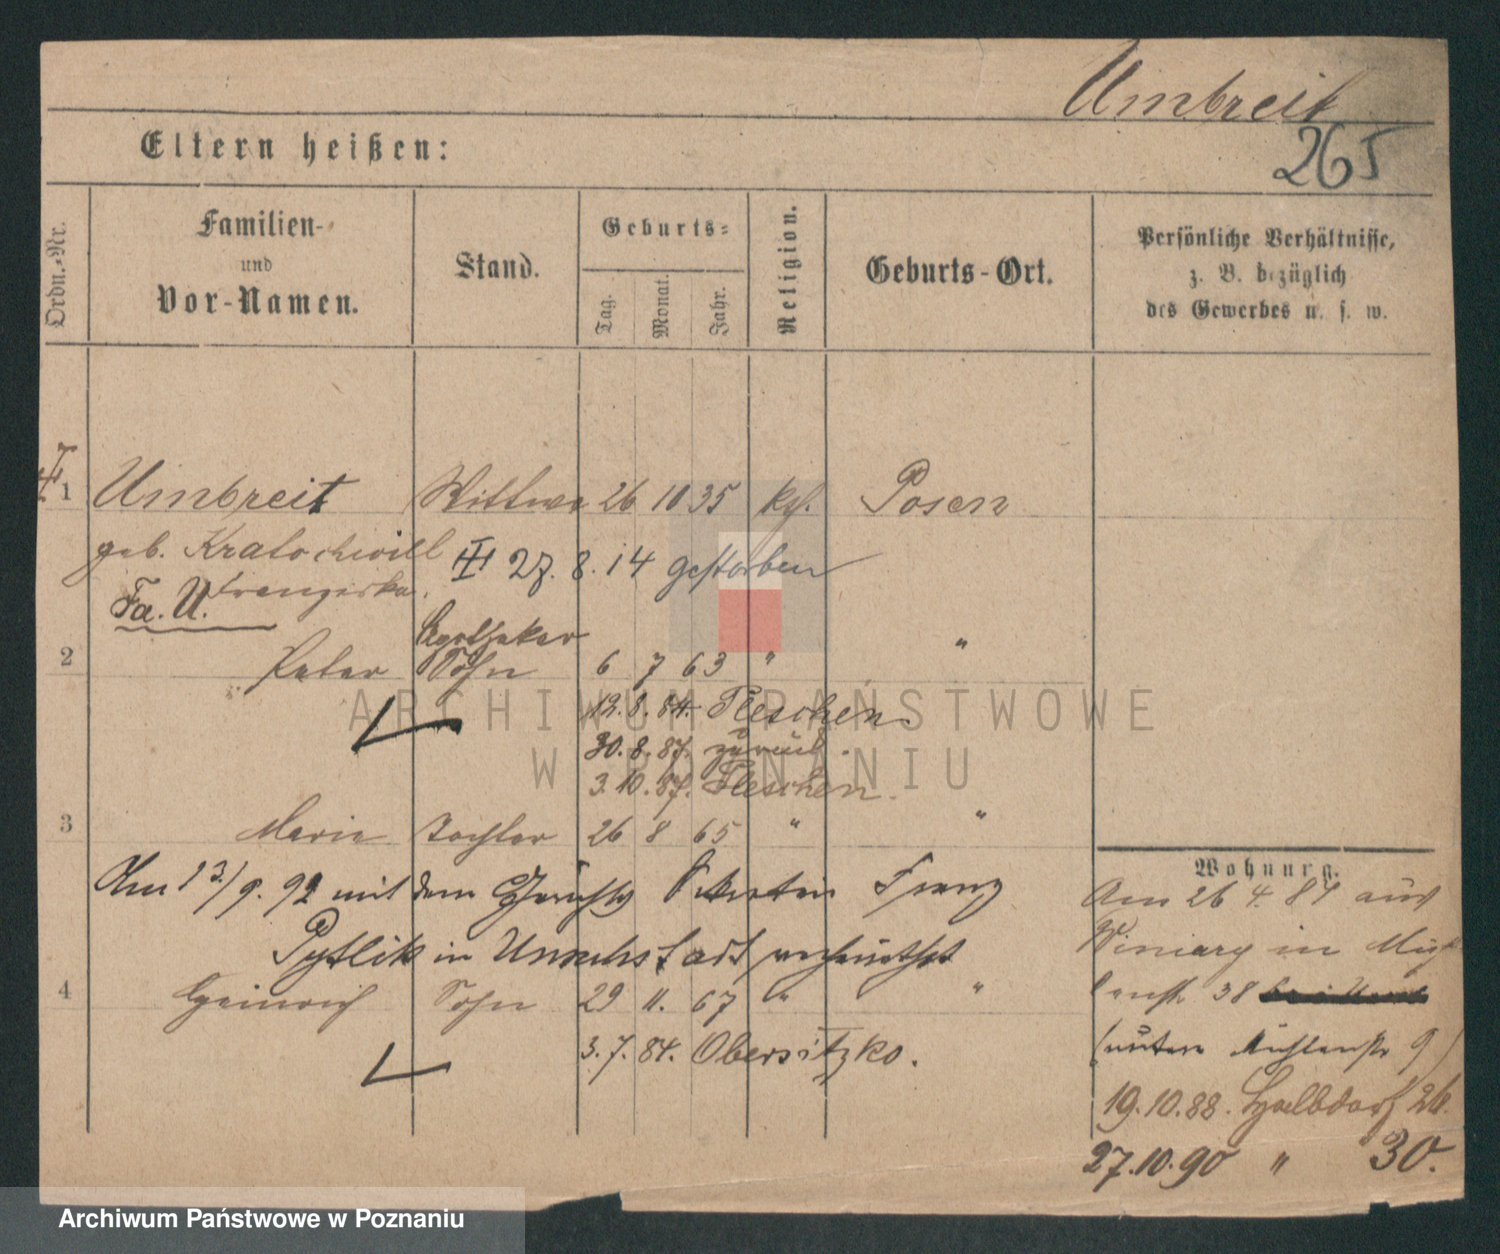 Umbreit
265
Eltern heißen:
Ordn.-Nr.
Familien-
und
Vor-Namen.
Stand.
Geburts-
Tag.
Monat.
Jahr.
Religion.
Geburts-Ort.
Persönliche Verhältnisse,
z. B. bezüglich
des Gewerbes u. s. w.
1 Umbreit Wittwe 26 10 35 kth. Posen
geb. Kratochwill 27. 8. 14 gestorben
Franziska.
Fa. U.
Apotheker
2 Peter Sohn 6 7 63 " "
12. 8. 84. Pleschen
30. 8. 87. zurück.
3. 10. 87. Pleschen.
3 Marie Tochter 26 8 65 " "
Am 13/9. 92 mit dem Franz
Pytlik in Unruhstadt verheirathet
4 Heinrich Sohn 29 11. 67 " "
3. 7. 84. Obersitzko.
Wohnung.
Am 26 4. 84 aus
Winiary in Müh
lenstr 38
(untere Mühlenstr 9)
19. 10. 88. Halbdorf 26.
27. 10. 90 " 30.
ARCHIWUM PAŃSTWOWE
W POZNANIU
Archiwum Państwowe w Poznaniu